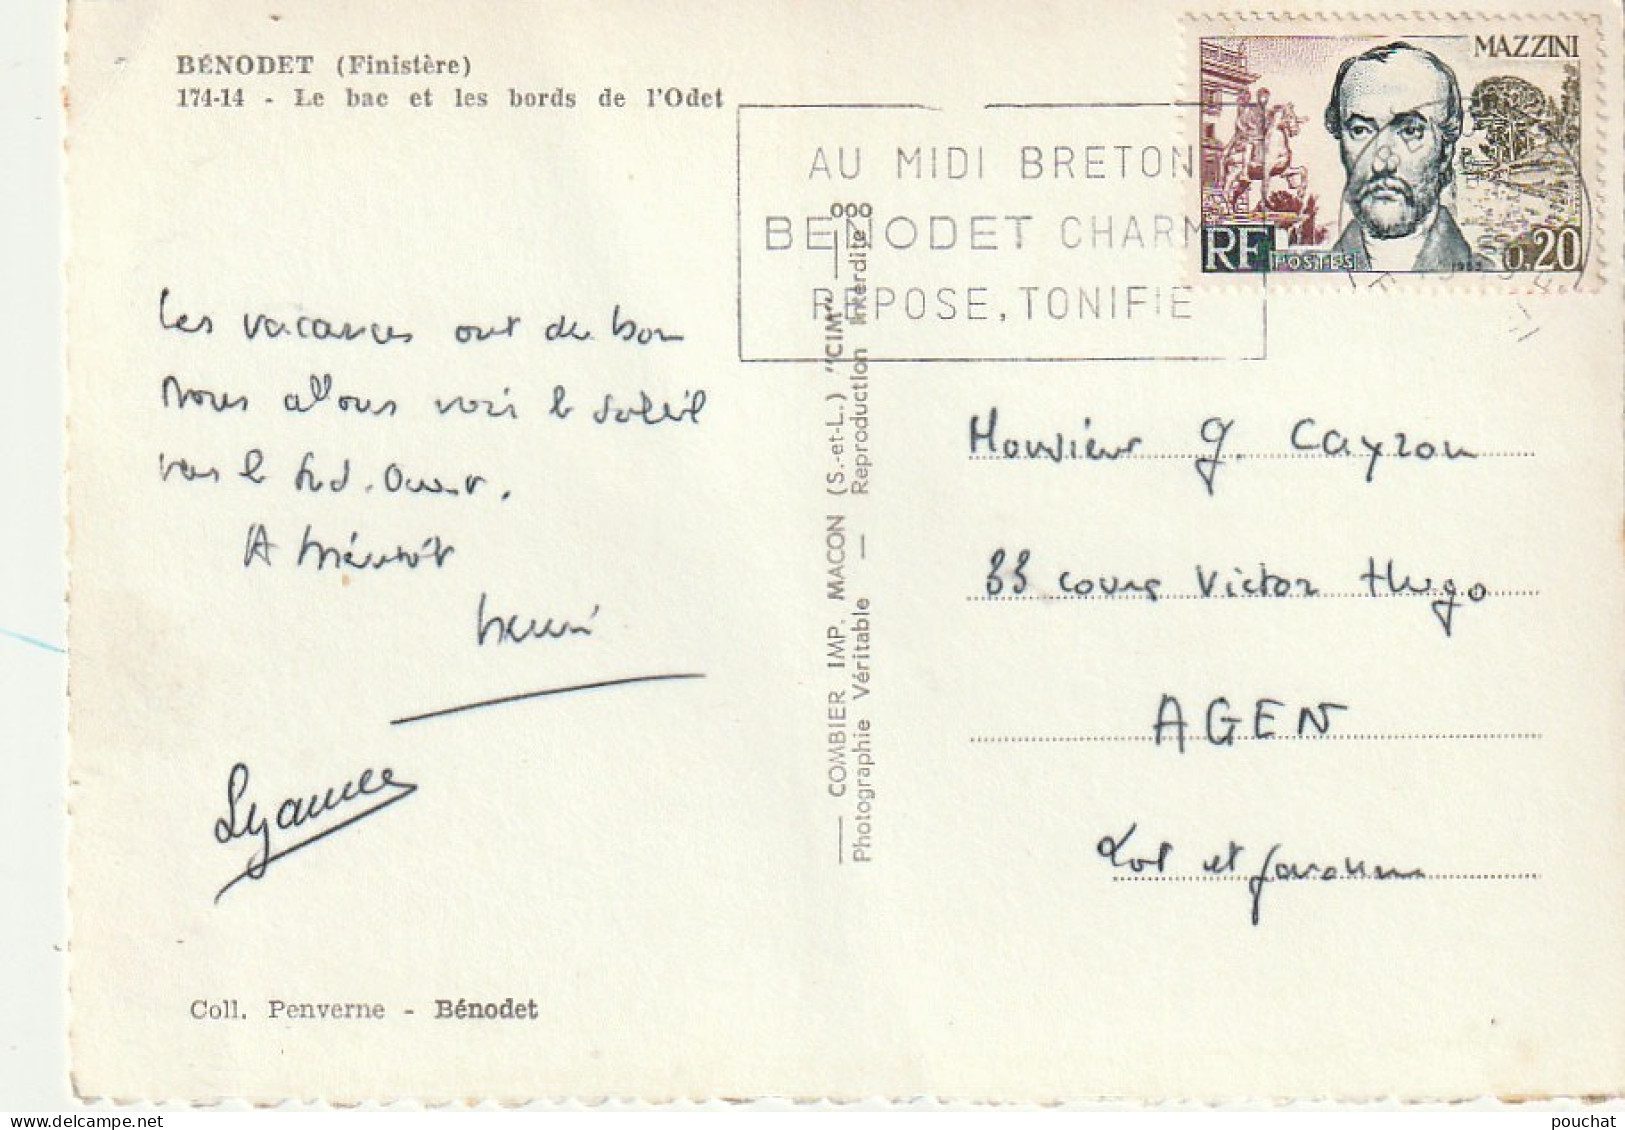 BÉNODET (Finistère)
174-14 - Le bac et les bords de l'Odet
MAZZINI
RF POSTES 1963 0.20
AU MIDI BRETON
BENODET CHARME
REPOSE, TONIFIE
Les vacances ont du bon
Nous allons voir le soleil
vers le Sud-Ouest.
A bientôt
Henri
COMBIER IMP. MACON (S.-et-L.) "CIM"
Photographie Véritable — Reproduction Interdite
Monsieur G. Cayrou
33 cours Victor Hugo
AGEN
Lot et Garonne
Coll. Penverne - Bénodet
pouchat